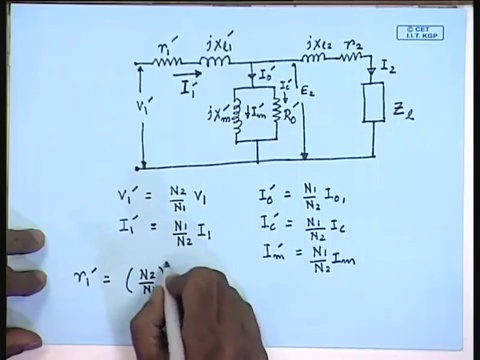 © CET
I.I.T. KGP
r₁' jxₗ₁' jxₗ₂ r₂
I₁' I₀' I₂
V₁' jxₘ' Iₘ' I꜀' R₀' E₂ Zₗ
V₁' = N₂/N₁ V₁ I₀' = N₁/N₂ I₀₁
I₁' = N₁/N₂ I₁ I꜀' = N₁/N₂ I꜀
Iₘ' = N₁/N₂ Iₘ
r₁' = (N₂/N₁)²